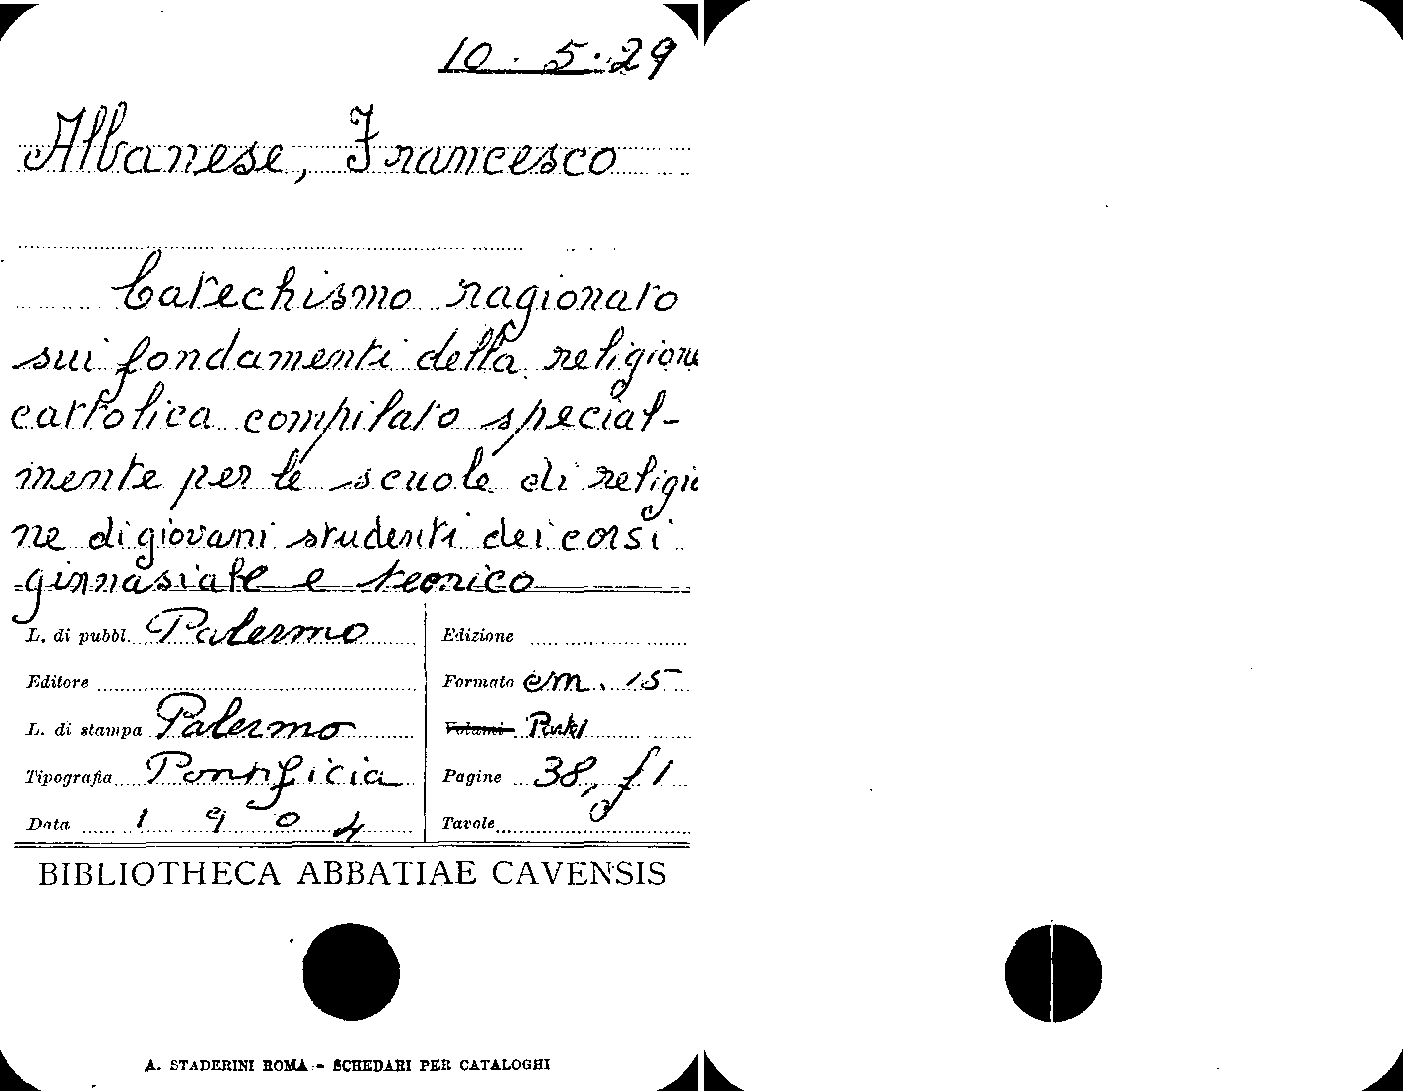 10.5.29
Albanese, Francesco
Catechismo ragionato
sui fondamenti della religione
cattolica compilato special-
mente per le scuole di religio
ne di giovani studenti dei corsi
ginnasiale e tecnico
L. di pubbl. Palermo
Edizione
Editore
Formato cm. 15
L. di stampa Palermo
Volumi
Tipografia Pontificia
Pagine 38, f 1
Data 1904
Tavole
BIBLIOTHECA ABBATIAE CAVENSIS
A. STADERINI ROMA - SCHEDARI PER CATALOGHI